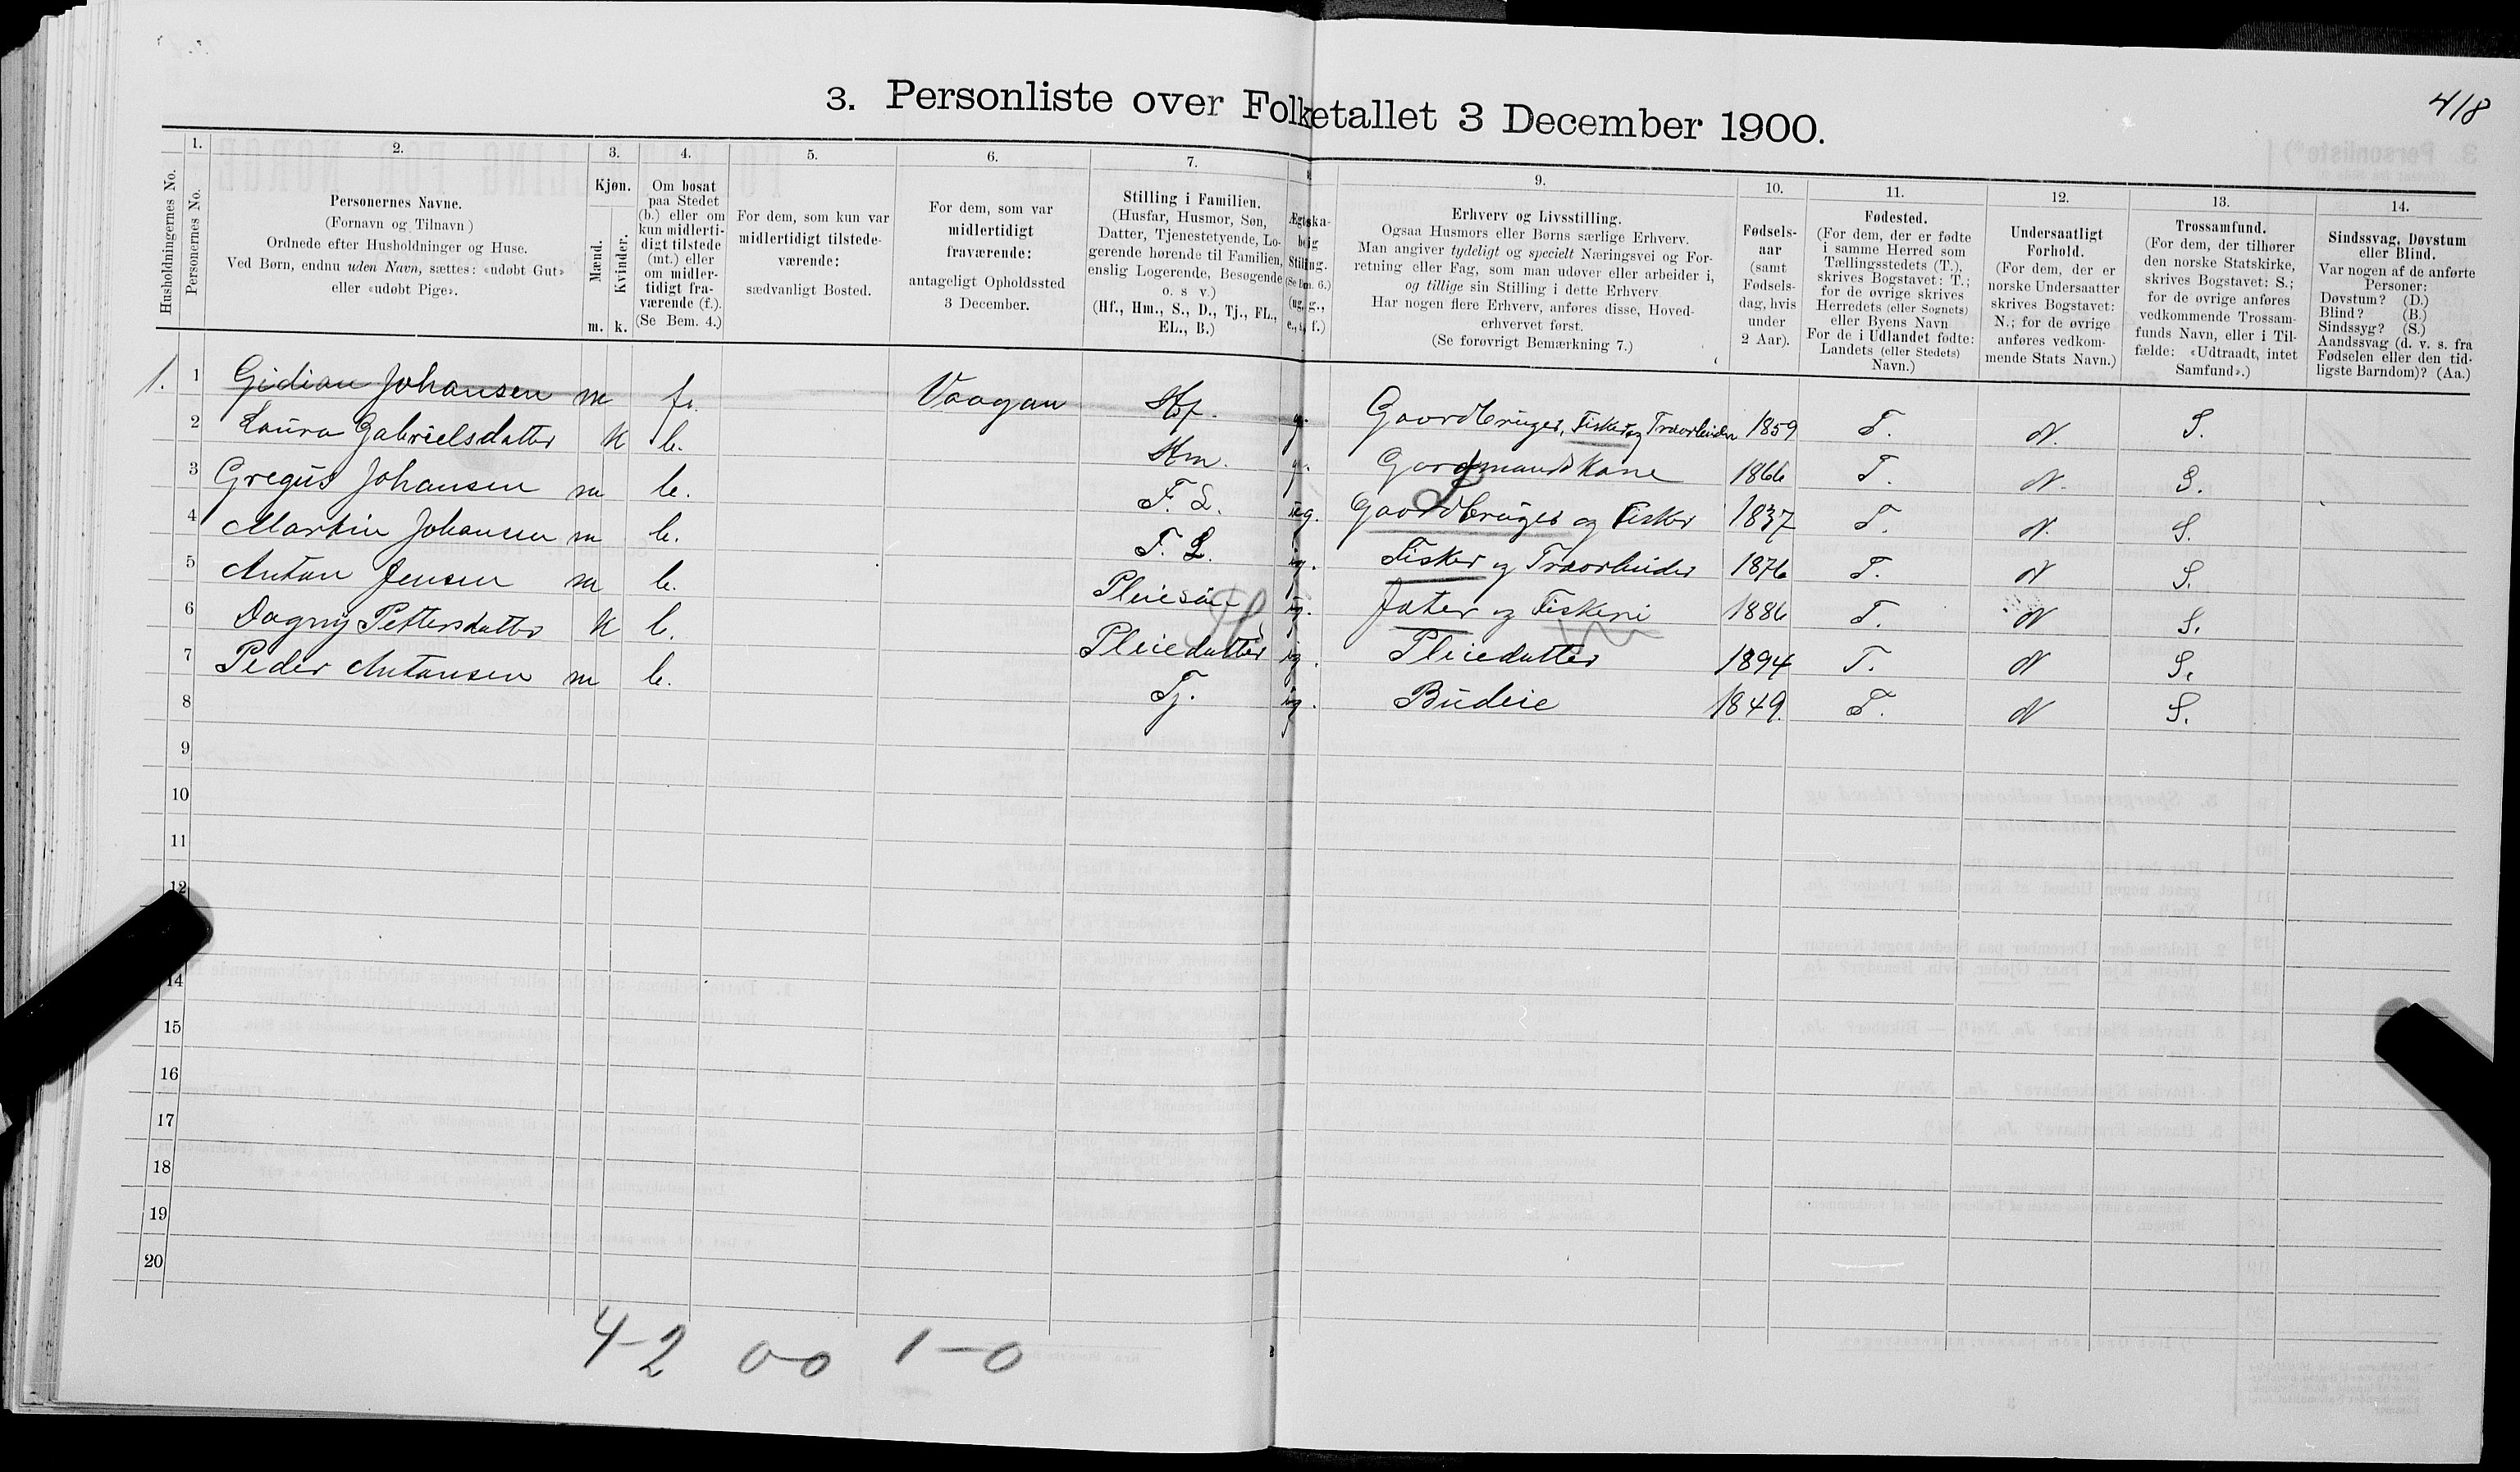 418
3. Personliste over Folketallet 3 December 1900.
1. 2. 3. 4. 5. 6. 7. 8 9. 10. 11. 12. 13. 14.
Husholdningernes No.
Personernes No.
Personernes Navne.
(Fornavn og Tilnavn)
Ordnede efter Husholdninger og Huse.
Ved Børn, endnu uden Navn, sættes: «udøbt Gut»
eller «udøbt Pige».
Kjøn.
Mænd.
Kvinder.
m. k.
Om bosat
paa Stedet
(b.) eller om
kun midlerti-
digt tilstede
(mt.) eller
om midler-
tidigt fra-
værende (f.).
(Se Bem. 4.)
For dem, som kun var
midlertidigt tilstede-
værende:
sædvanligt Bosted.
For dem, som var
midlertidigt
fraværende:
antageligt Opholdssted
3 December.
Stilling i Familien.
(Husfar, Husmor, Søn,
Datter, Tjenestetyende, Lo-
gerende hørende til Familien,
enslig Logerende, Besøgende
o. s v.)
(Hf., Hm., S., D., Tj., FL.,
EL., B.)
Ægteska-
belig
Stilling.
(Se Bem. 6.)
(ug., g.,
e., s., f.)
Erhverv og Livsstilling.
Ogsaa Husmors eller Børns særlige Erhverv.
Man angiver tydeligt og specielt Næringsvei og For-
retning eller Fag, som man udøver eller arbeider i,
og tillige sin Stilling i dette Erhverv.
Har nogen flere Erhverv, anføres disse, Hoved-
erhvervet først.
(Se forøvrigt Bemærkning 7.)
Fødsels-
aar
(samt
Fødsels-
dag, hvis
under
2 Aar).
Fødested.
(For dem, der er fødte
i samme Herred som
Tællingsstedets (T.),
skrives Bogstavet: T.;
for de øvrige skrives
Herredets (eller Sognets)
eller Byens Navn
For de i Udlandet fødte:
Landets (eller Stedets)
Navn.)
Undersaatligt
Forhold.
(For dem, der er
norske Undersaatter
skrives Bogstavet:
N.; for de øvrige
anføres vedkom-
mende Stats Navn.)
Trossamfund.
(For dem, der tilhører
den norske Statskirke,
skrives Bogstavet: S.;
for de øvrige anføres
vedkommende Trossam-
funds Navn, eller i Til-
fælde: «Udtraadt, intet
Samfund».)
Sindssvag, Døvstum
eller Blind.
Var nogen af de anførte
Personer:
Døvstum? (D.)
Blind? (B.)
Sindssyg? (S.)
Aandssvag (d. v. s. fra
Fødselen eller den tid-
ligste Barndom)? (Aa.)
1. 1 Gidian Johansen m f. Vaagan Hf. g. Gaardbruger, Fisker og Traarbeider 1859 T. N. S.
2 Laura Gabrielsdatter k b. Hm. g. Gardmandskone 1866 T. N. S.
3 Gregus Johansen m b. F. L. ug. Gaardbruger og Fisker 1837 T. N. S.
4 Martin Johansen m b. F. L. ug. Fisker og Traarbeider 1876 T. N S.
5 Anton Jensen m b. Pleiesøn ug. Jæter og Fiskeri 1886 T. N S.
6 Dagny Pettersdatter k b. Pleiedatter ug. Pleiedatter 1894 T. N S.
7 Peder Antonsen m b. Tj. ug. Budeie 1849. T. N S.
8
9
10
11
12
14
15
16
17
18
19
20
4-2 0-0 1-0